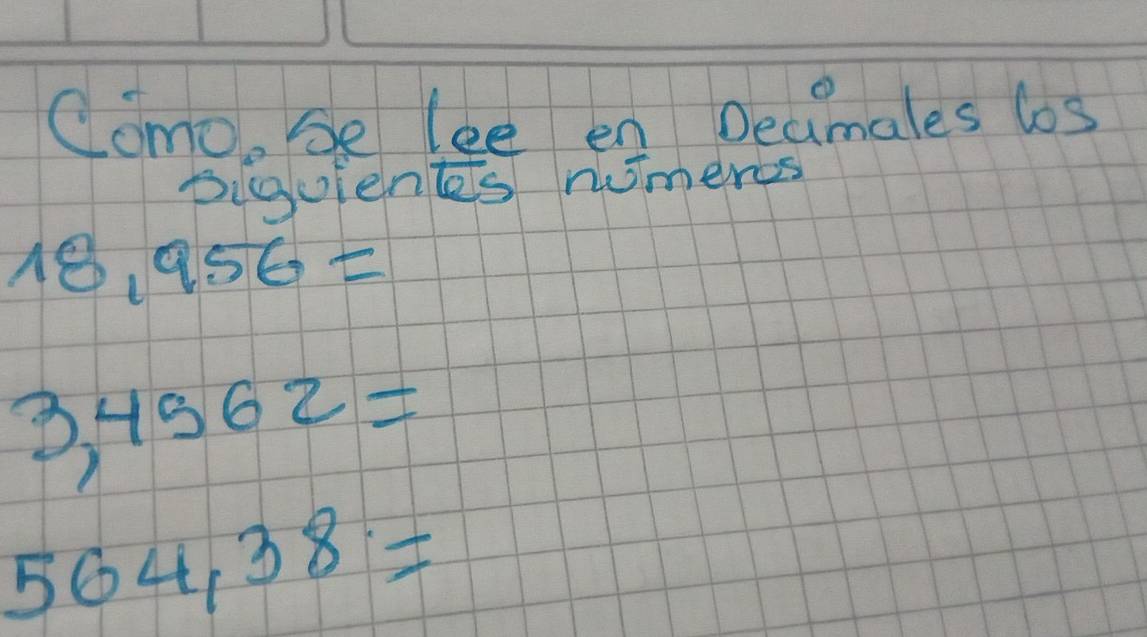 Cómo. Se lee en Decimales los
siguientes números
18,956 =
3,4562 =
564,38 =